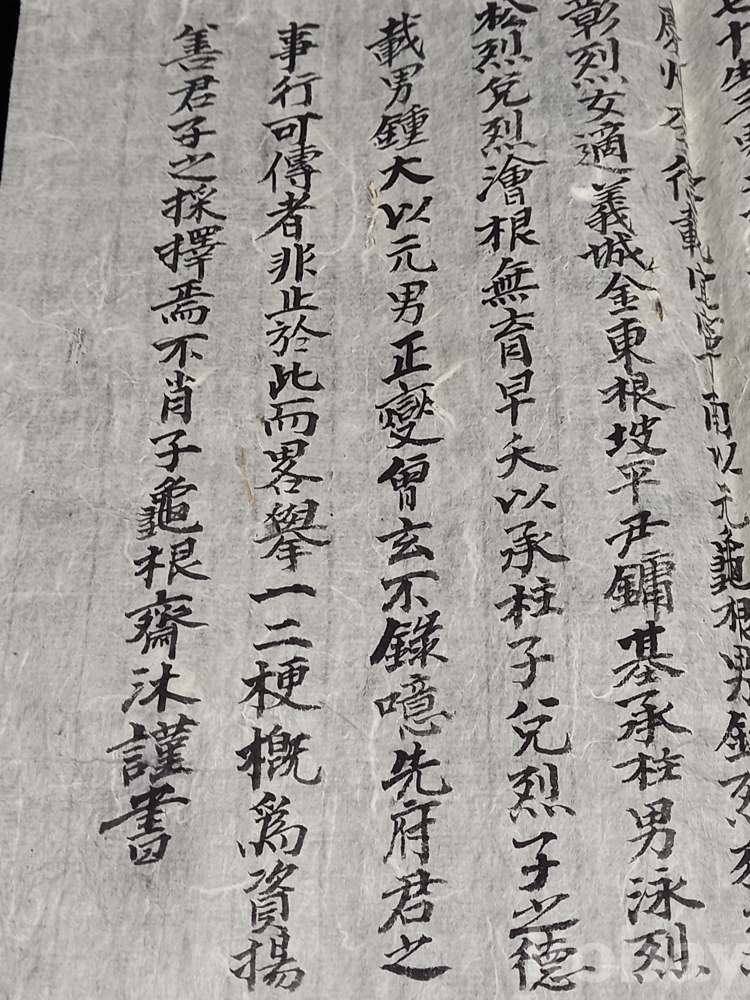 七十
男以元龜根男錫烈
彰烈女適義城金東根坡平尹鏞基承柱男泳烈
松烈兌烈澮根無育早夭以承柱子兌烈子之德
載男鍾大以元男正變曾玄不錄噫先府君之
事行可傳者非止於此而畧擧一二梗槪爲資揚
善君子之採擇焉不肖子龜根齋沐謹書